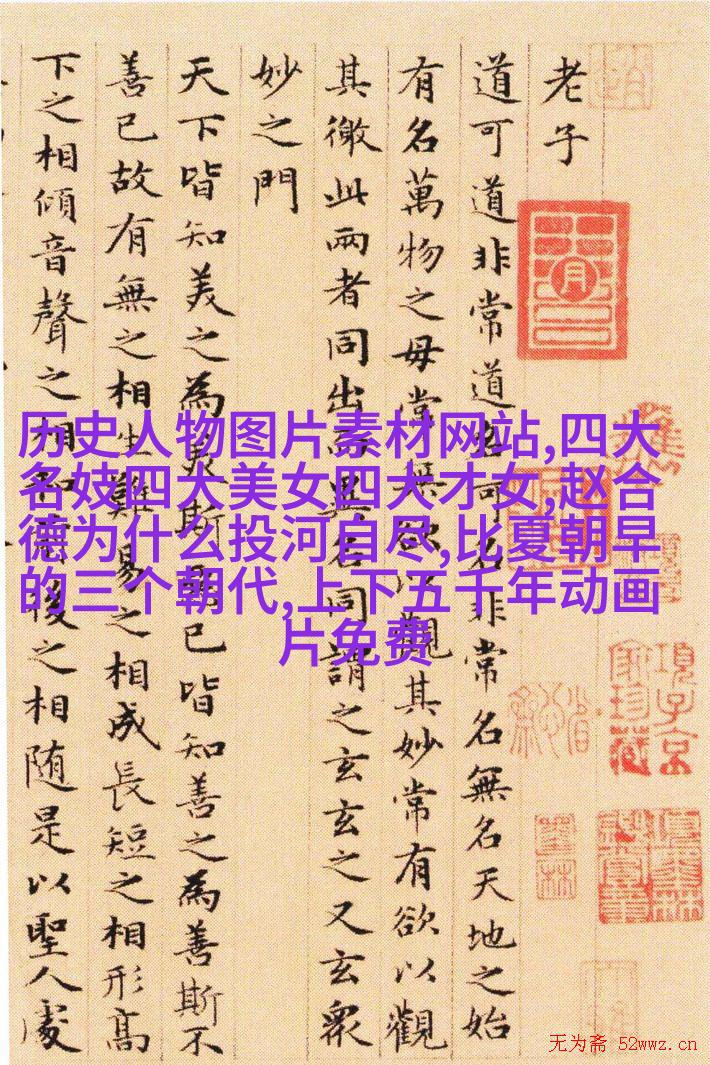 老子
道可道非常道名可名非常名無名天地之始
有名萬物之母常無欲以觀其妙常有欲以觀
其徼此兩者同出而異名同謂之玄玄之又玄衆
妙之門
天下皆知美之為美斯惡已皆知善之為善斯不
善已故有無之相生難易之相成長短之相形髙
下之相傾音聲之相和前後之相随是以聖人處
历史人物图片素材网站,四大
名妓四大美女四大才女,赵合
德为什么投河自尽,比夏朝早
的三个朝代,上下五千年动画
片免费
項子京
家珍藏
无为斋 52wwz.cn